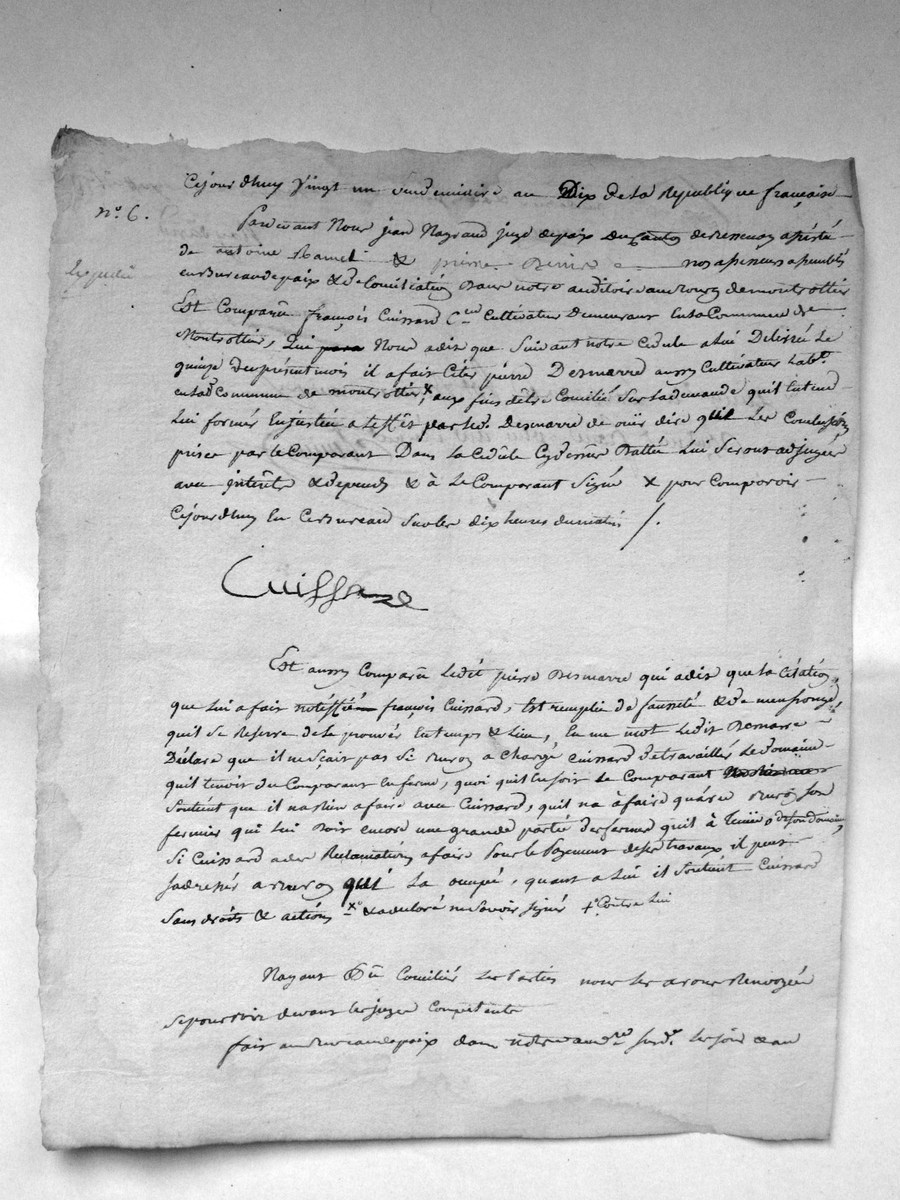 Cejourdhuy vingt un vendemiaire an Dix de la Republique française
n°. 6.
Pardevant Nous jean Nayrand juge de paix du canton de Bessenay assisté
de antoine & pierre nos assesseurs assemblés
Expédié
en Bureau de paix & de Conciliation dans notre auditoire au Bourg de montrottier
Est Comparû françois Cuissard C.en Cultivateur Demeurant en la Commune de
Montrottier, Lui Nous a dit que suivant notre cedule a lui Delivrée Le
quinze du present mois il a fait Citer pierre Desmarre aussy Cultivateur habt.
en lad. Commune de montrottier x, aux fins d'etre Concilié sur la demande quil entend
Lui former En justice a l'effet par led. Desmarre de ouir dire que Les Conclusions
prises par le Comparant Dans la Cedule Cydessus Dattée Lui seront adjugées
avec interets & depends & à Le Comparant Signé x pour Comparoir
Cejourdhuy en ce Bureau sur les dix heures du matin /.
Cuissard
Est aussy Comparû Ledit pierre Desmarre qui a dit que la Citation
que Lui a fait notiffié françois Cuissard, Est remplie de fausseté & de mensonge,
quil se Reserve de le prouver En temps & Lieu, En un mot Ledit Demarre
Déclare que il ne sçait pas si a Chargé Cuissard de travailler Le domaine
quil tenoit du Comparant En ferme, quoi quil en soit Le Comparant
Soutient que il na rien a faire avec Cuissard, quil na à faire quà son
fermier qui Lui Doit encore une grande partie des fermes quil à Tenü de son domaine,
Si Cuissard a des Reclamations a faire Pour le Payement de ses travaux il peut
sadresser a qui La ocupé, quant a Lui il Soutient Cuissard
Sans droits & actions x & a declaré ne savoir signer + Contre Lui
Nayant Pû Concilier Les Parties nous Les avons Renvoyées
Se pourvoir devant les juges Competents
fait au Bureau de paix dans notre aud.re susd. Les jour & an